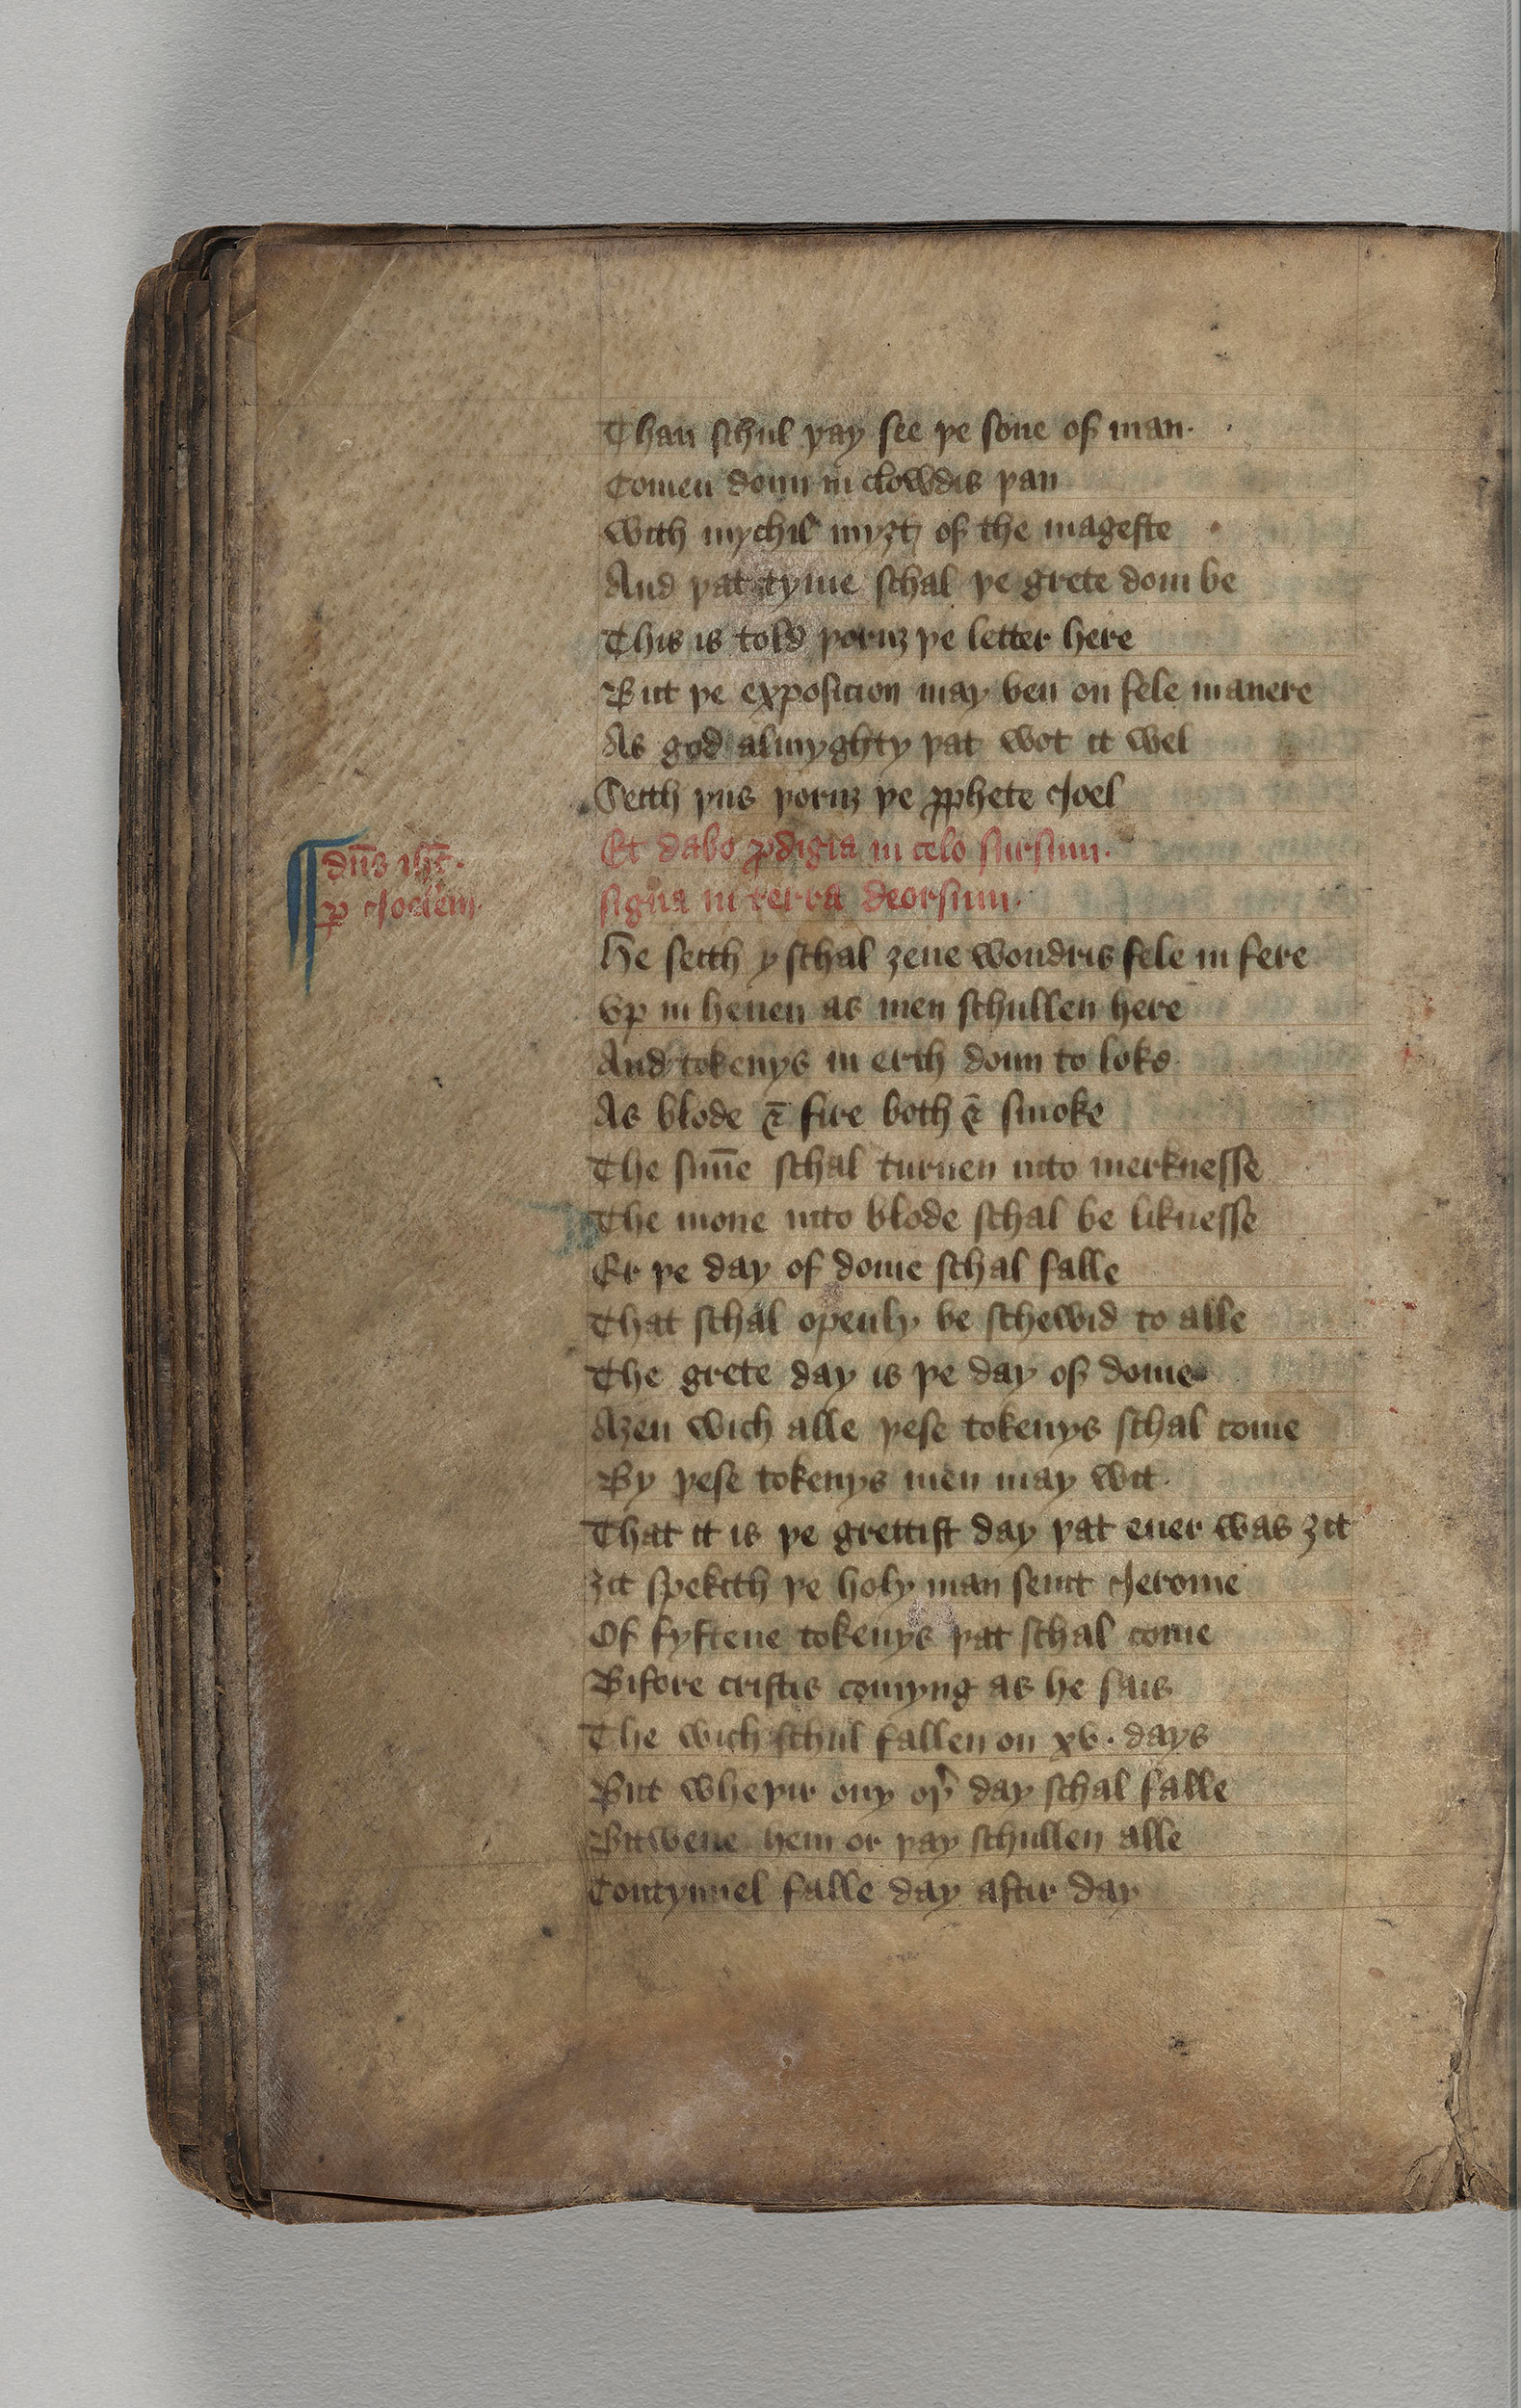 Than schul þay see þe sone of man·
Comen doun in clowdis þan
With mychil myȝt of the mageste
And þat tyme schal þe grete dom be
This is told þoruȝ þe letter here
But þe exposicion may ben on fele manere
As god almyghty þat wot it wel
Seith þus þoruȝ þe ꝓphete Joel
dn̄s ih̄c·
ꝑ Joelem·
Et dabo ꝓdigia in celo sursum·
signa in terra deorsum·
He seith y schal ȝeue wondris fele in fere
Vp in heuen as men schullen here
And tokenys in erth doun to loke
As blode & fire both & smoke
The sun̄e schal turnen into merknesse
The mone into blode schal be liknesse
Er þe day of dome schal falle
That schal openly be schewid to alle
The grete day is þe day of dome
Aȝen wich alle þese tokenys schal come
By þese tokenys men may wit·
That it is þe grettist day þat euer was ȝit
Ȝit spekith þe holy man seint Jerome
Of fyftene tokenys þat schal come
Bifore cristis comyng as he sais
The wich schul fallen on xv· days
But wheþir ony oþ̉ day schal falle
Bitwene hem or þay schullen alle
Contynuel falle day aftir day